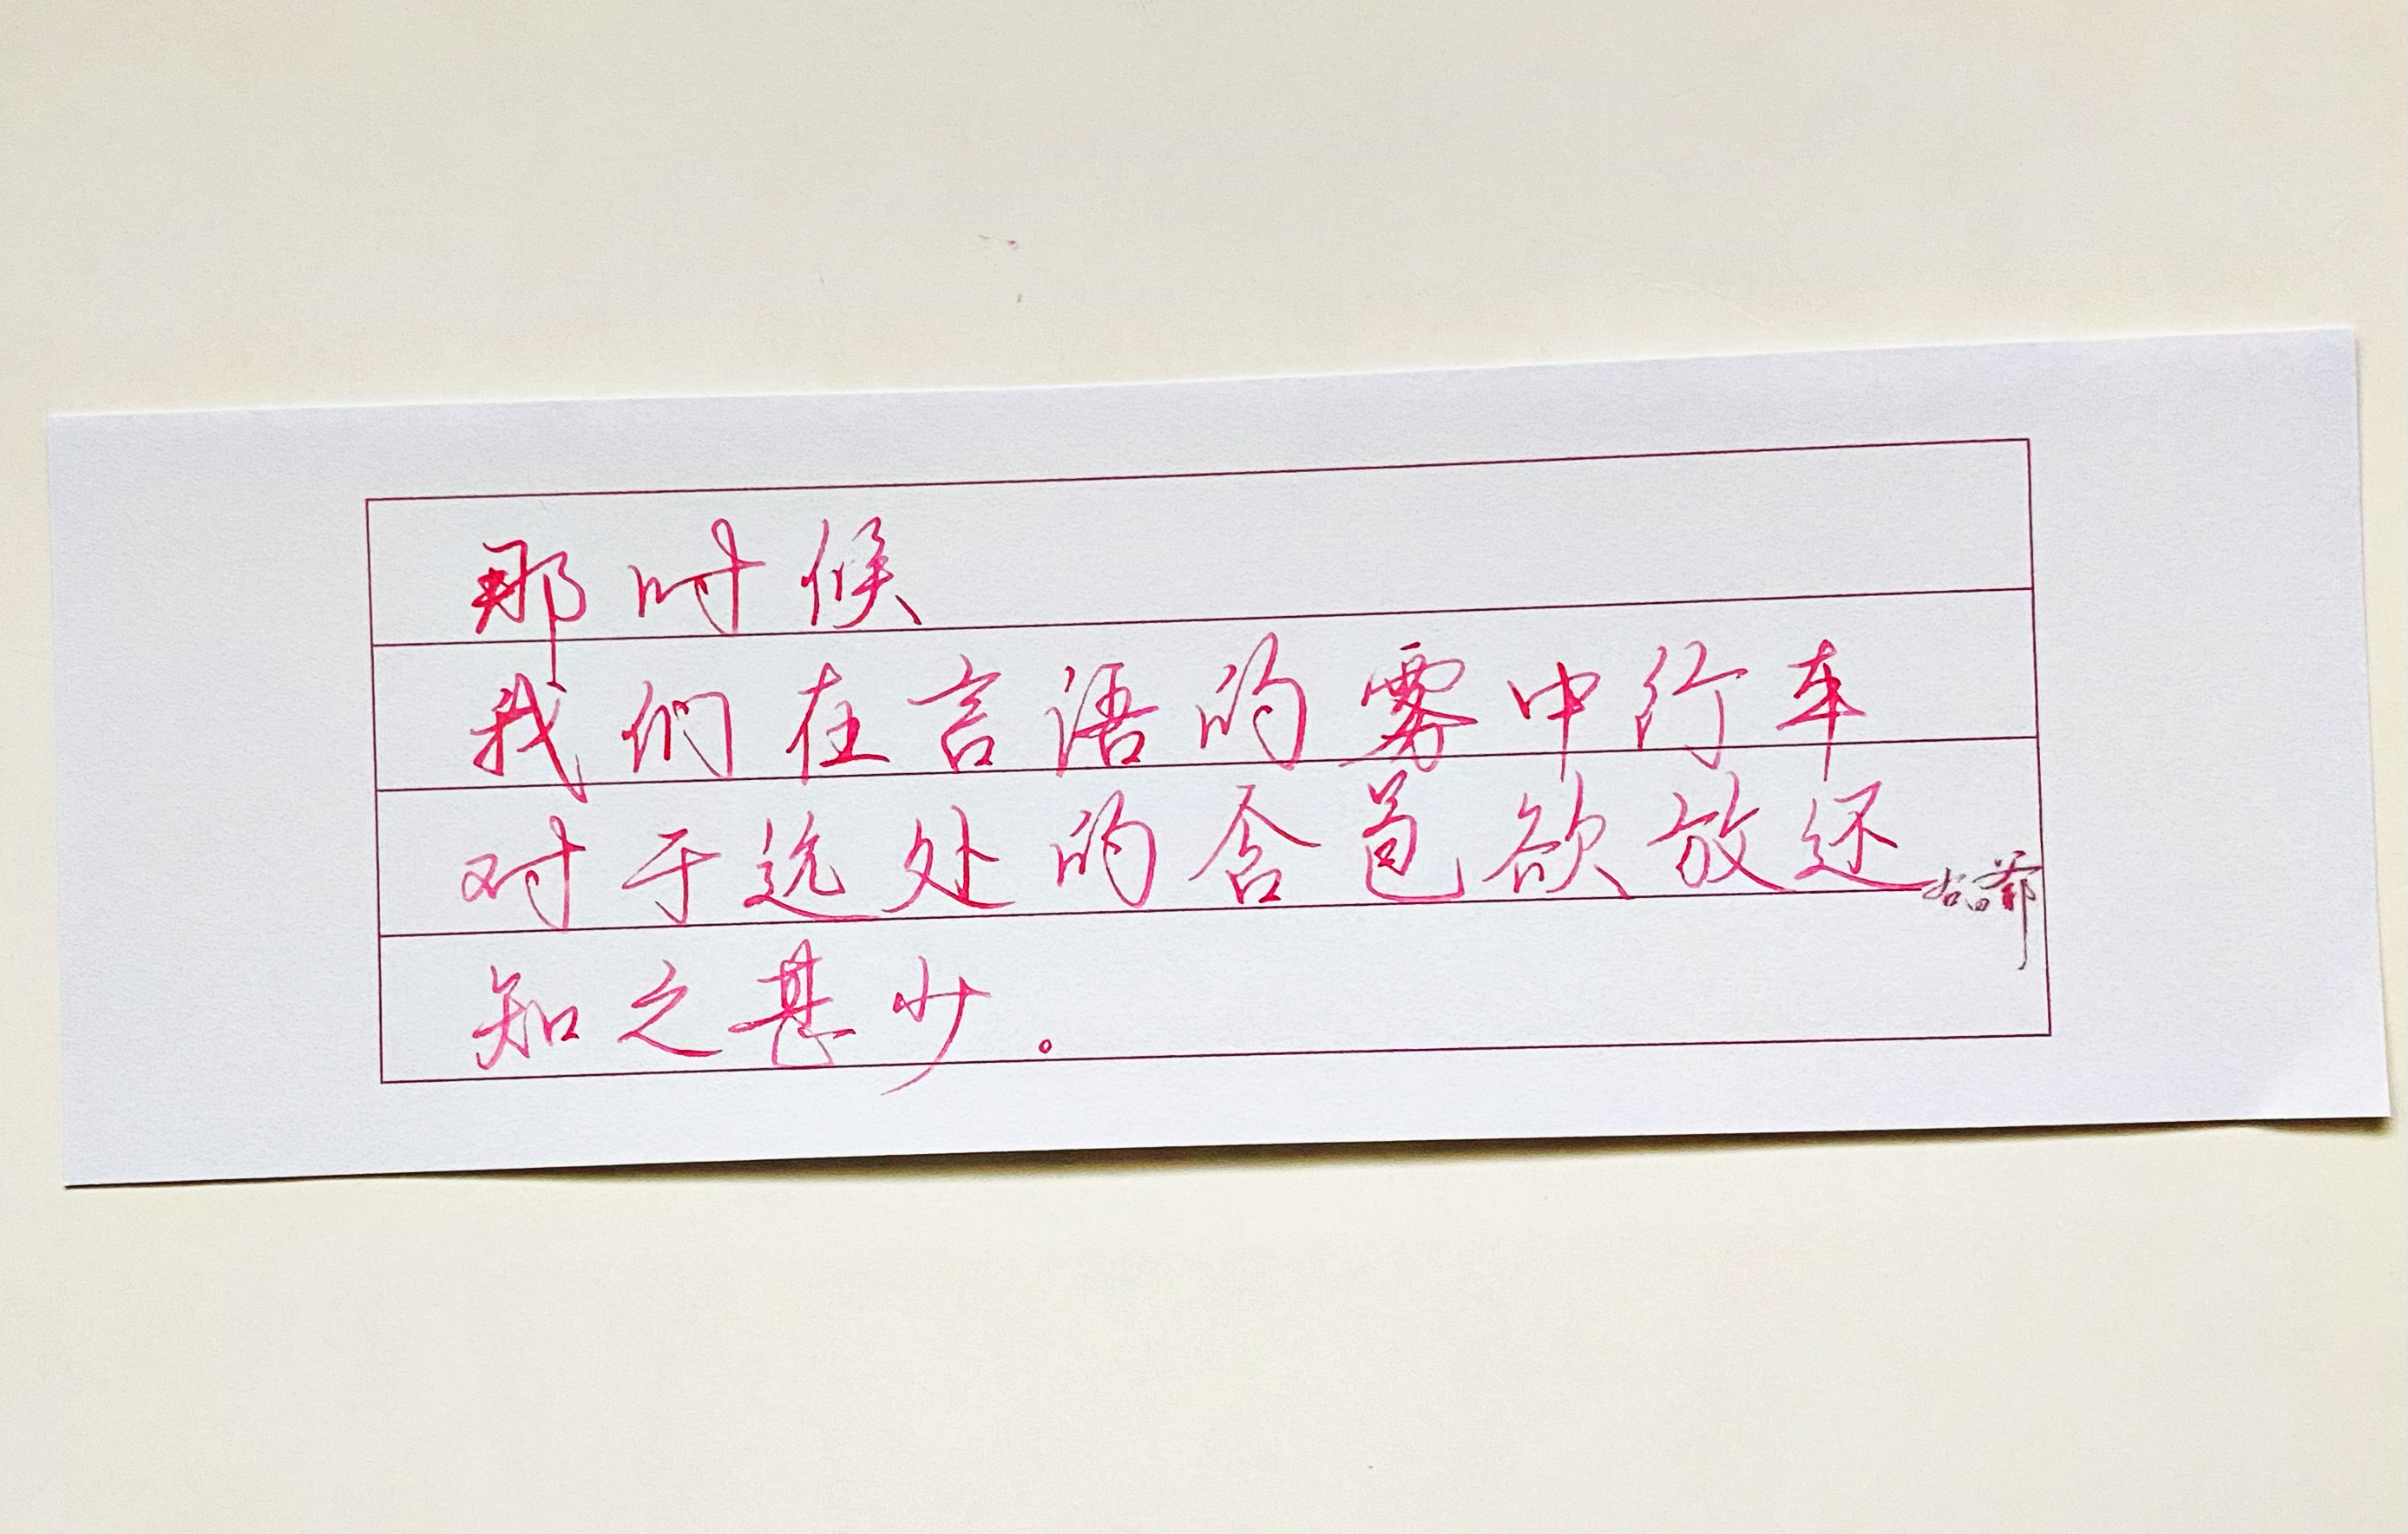 那时候
我们在言语的雾中行车
对于远处的含苞欲放还
知之甚少。